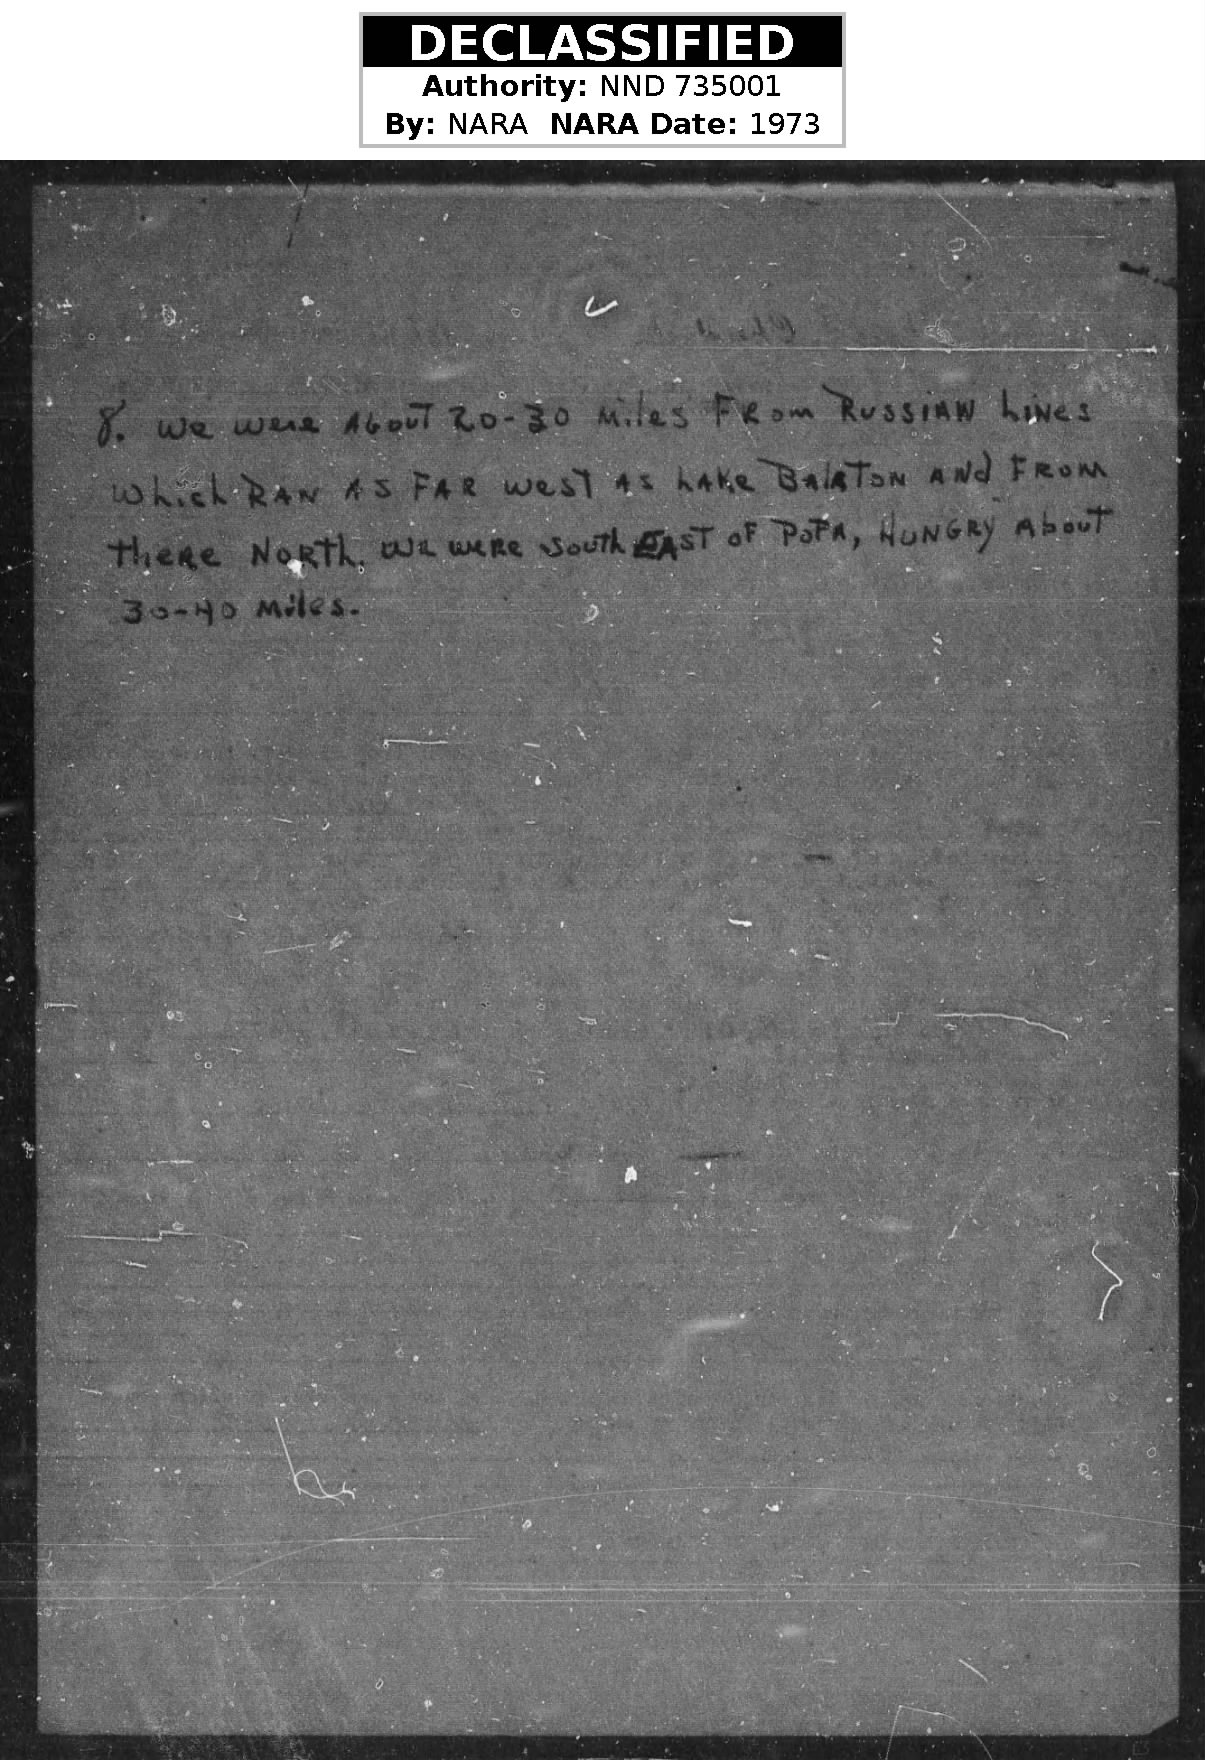 DECLASSIFIED
Authority: NND 735001
By: NARA NARA Date: 1973
8. We were About 20-30 Miles From Russian Lines
which RAN AS FAR west AS LAKe BalATON ANd FROM
there NORth. We were south EAST oF PoPA, HUNGRY About
30-40 Miles.